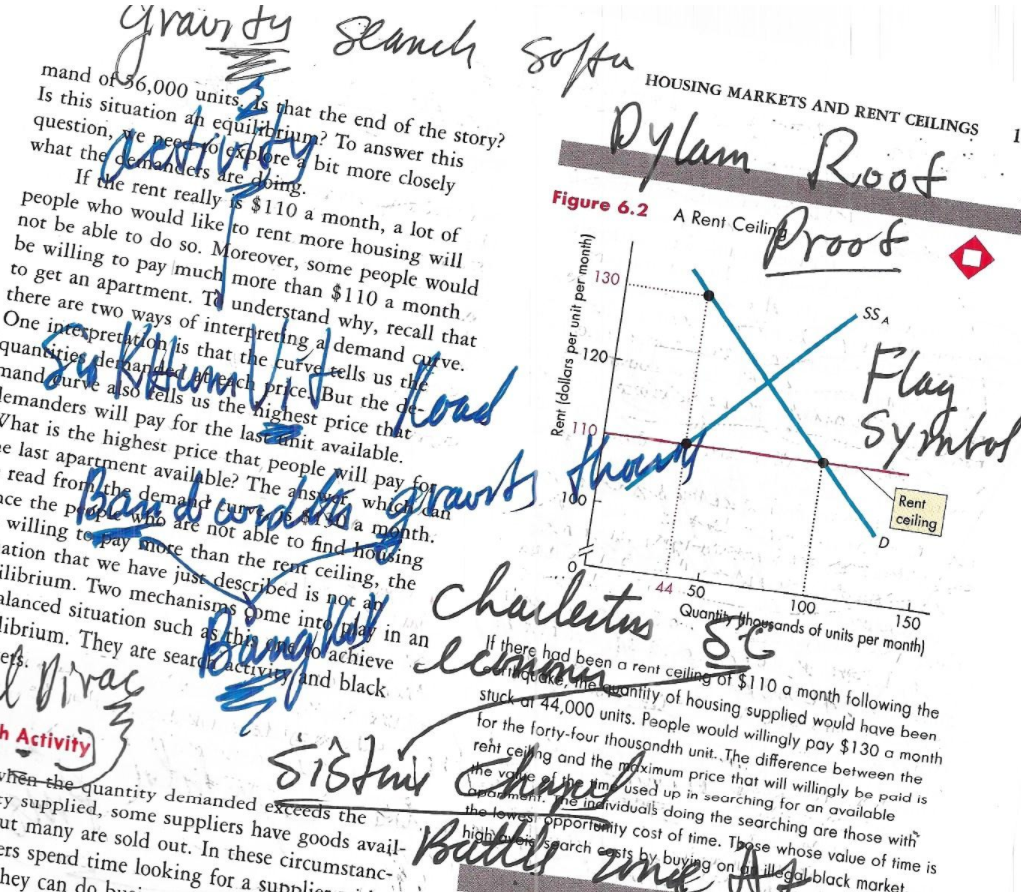 gravity search
HOUSING MARKETS AND RENT CEILINGS 1
mand of 56,000 units. Is that the end of the story?
Is this situation an equilibrium? To answer this
question, we need to explore a bit more closely
what the demanders are doing.
If the rent really is $110 a month, a lot of
people who would like to rent more housing will
not be able to do so. Moreover, some people would
be willing to pay much more than $110 a month
to get an apartment. To understand why, recall that
there are two ways of interpreting a demand curve.
One interpretation is that the curve tells us the
quantities demanded at each price. But the de-
mand curve also tells us the highest price that
demanders will pay for the last unit available.
What is the highest price that people will pay for
the last apartment available? The answer, which can
read from the demand curve, is $130 a month.
nce the people who are not able to find housing
willing to pay more than the rent ceiling, the
ation that we have just described is not an
ilibrium. Two mechanisms come into play in an
alanced situation such as this one to achieve
librium. They are search activity and black
ets.
activity
SuKHumVit Road
gravity
Bangkok
Dirac
h Activity
when the quantity demanded exceeds the
ty supplied, some suppliers have goods avail-
ut many are sold out. In these circumstanc-
ers spend time looking for a supplier
they can do
Dylan Roof
Proof
Figure 6.2 A Rent Ceiling
Rent (dollars per unit per month)
130
120
110
100
0
SS A
D
Rent
ceiling
44 50 100 150
Quantity (thousands of units per month)
Flag
Symbol
Charleston SC
Sistine Chapel
Battle zone
If there had been a rent ceiling of $110 a month following the
earthquake, the quantity of housing supplied would have been
stuck at 44,000 units. People would willingly pay $130 a month
for the forty-four thousandth unit. The difference between the
rent ceiling and the maximum price that will willingly be paid is
the value of the time used up in searching for an available
apartment. The individuals doing the searching are those with
the lowest opportunity cost of time. Those whose value of time is
high avoid search costs by buying on an illegal black market.